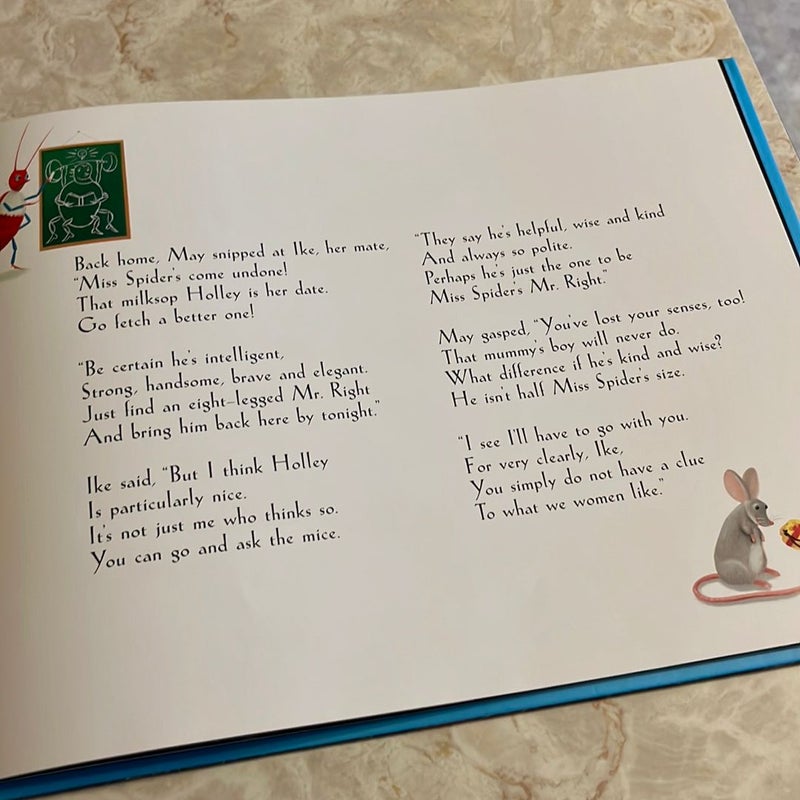 Back home, May snipped at Ike, her mate,
"Miss Spider's come undone!
That milksop Holley is her date.
Go fetch a better one!
"Be certain he's intelligent,
Strong, handsome, brave and elegant.
Just find an eight-legged Mr. Right
And bring him back here by tonight."
Ike said, "But I think Holley
Is particularly nice.
It's not just me who thinks so.
You can go and ask the mice.
"They say he's helpful, wise and kind
And always so polite.
Perhaps he's just the one to be
Miss Spider's Mr. Right."
May gasped, "You've lost your senses, too!
That mummy's boy will never do.
What difference if he's kind and wise?
He isn't half Miss Spider's size.
"I see I'll have to go with you.
For very clearly, Ike,
You simply do not have a clue
To what we women like."